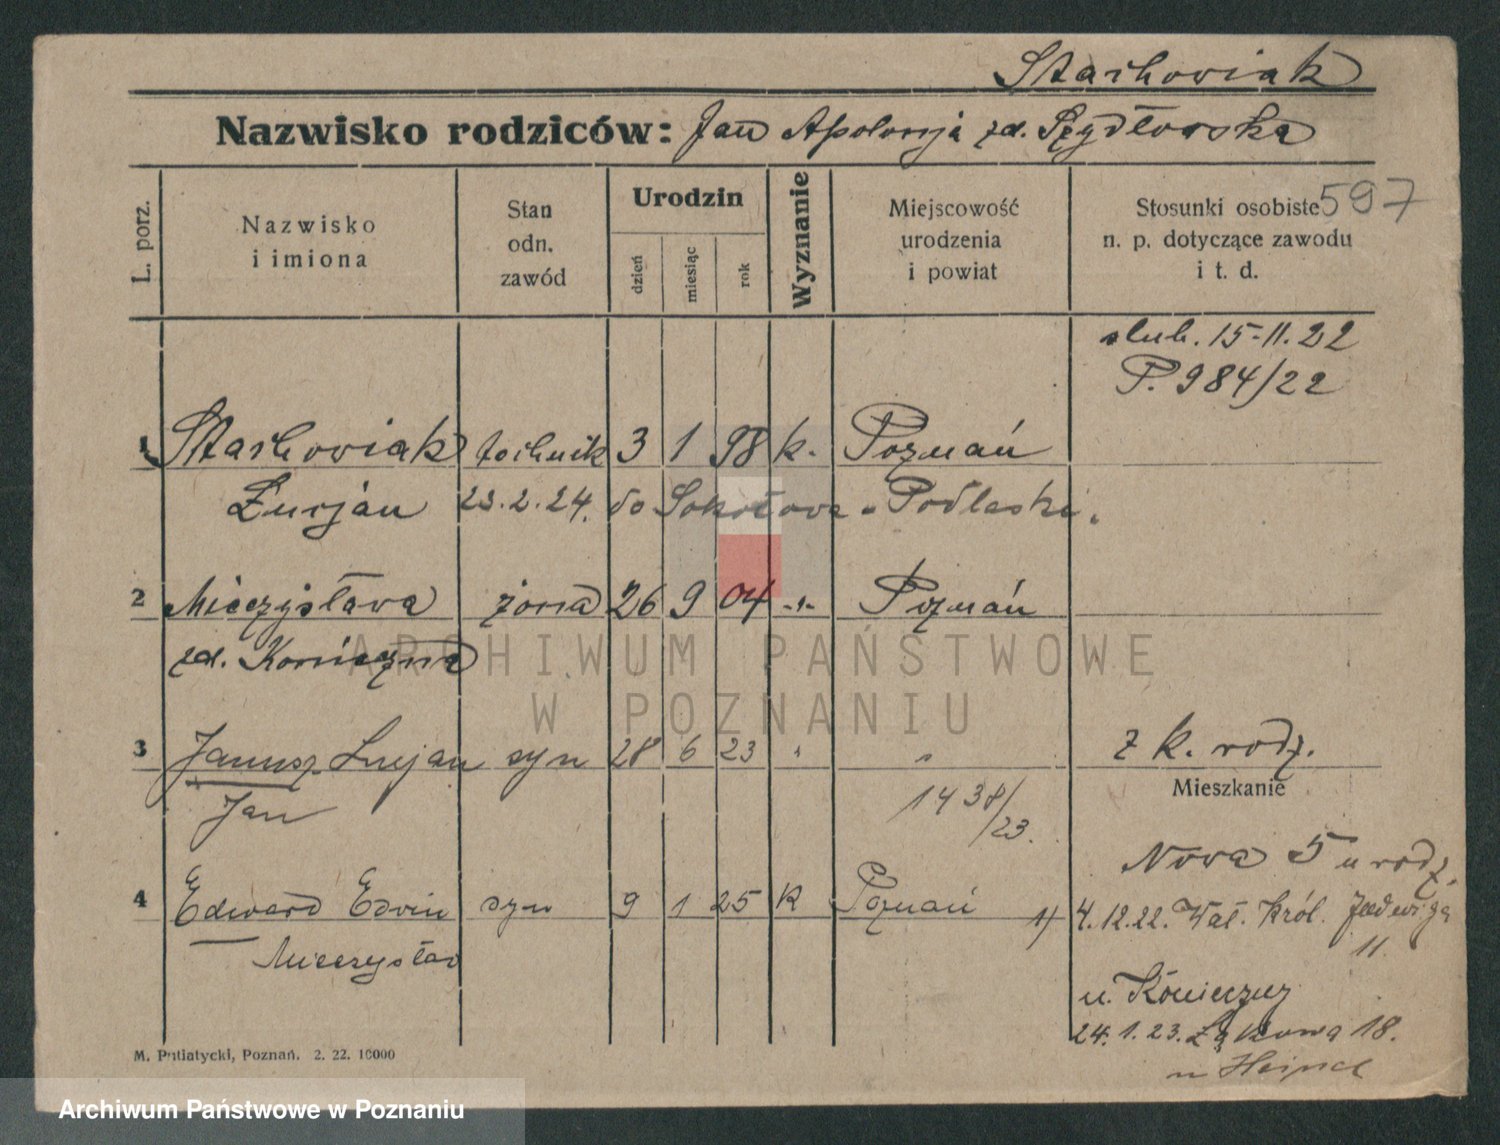 Stachowiak
Nazwisko rodziców: Jan Apolonja zd. Szydłowska
L. porz.
Nazwisko i imiona
Stan odn. zawód
Urodzin
dzień
miesiąc
rok
Wyznanie
Miejscowość urodzenia i powiat
Stosunki osobiste 597
n. p. dotyczące zawodu
i t. d.
slub. 15-11.22
P. 984/22
1 Stachowiak technik 3 1 98 k. Poznań
Łucjan 23.2.24. do Sokołowa - Podlaski.
2 Mieczysława żona 26 9 04 -„- Poznań
zd. Konieczna
3 Janusz Lucjan syn 28 6 23 " " z k. rodz.
Jan 1438/23.
Mieszkanie
Nowa 5 u rodz.
4 Edward Edwin syn 9 1 25 k Poznań
Mieczysław
1) 4.12.22. Wał. Król. Jadwigi
11.
u. Koniecznej
24.1.23. Łąkowa 18.
u
M. Putiatycki, Poznań. 2. 22. 10000
ARCHIWUM PAŃSTWOWE
W POZNANIU
Archiwum Państwowe w Poznaniu